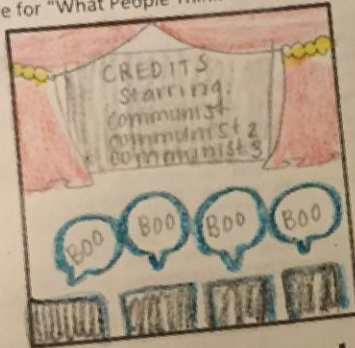 e for "What People Thin
CREDITS
Starring:
communist
communist 2
communist 3
BOO
BOO
BOO
BOO